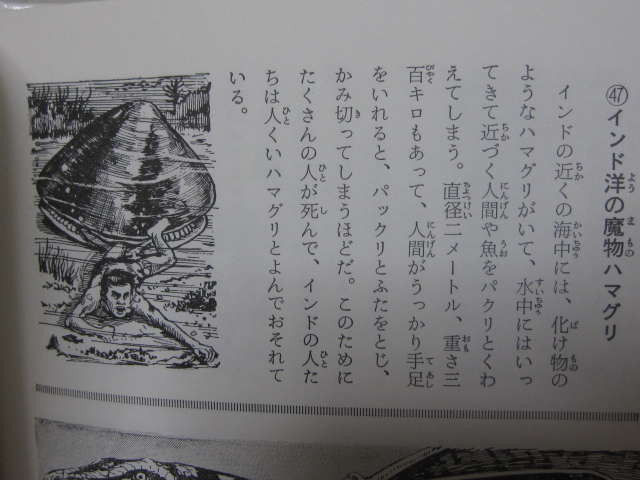 ㊼インド洋の魔物ハマグリ
インドの近くの海中には、化け物の
ようなハマグリがいて、水中にはいっ
てきて近づく人間や魚をパクリとくわ
えてしまう。直径二メートル、重さ三
百キロもあって、人間がうっかり手足
をいれると、パックリとふたをとじ、
かみ切ってしまうほどだ。このために
たくさんの人が死んで、インドの人た
ちは人くいハマグリとよんでおそれて
いる。